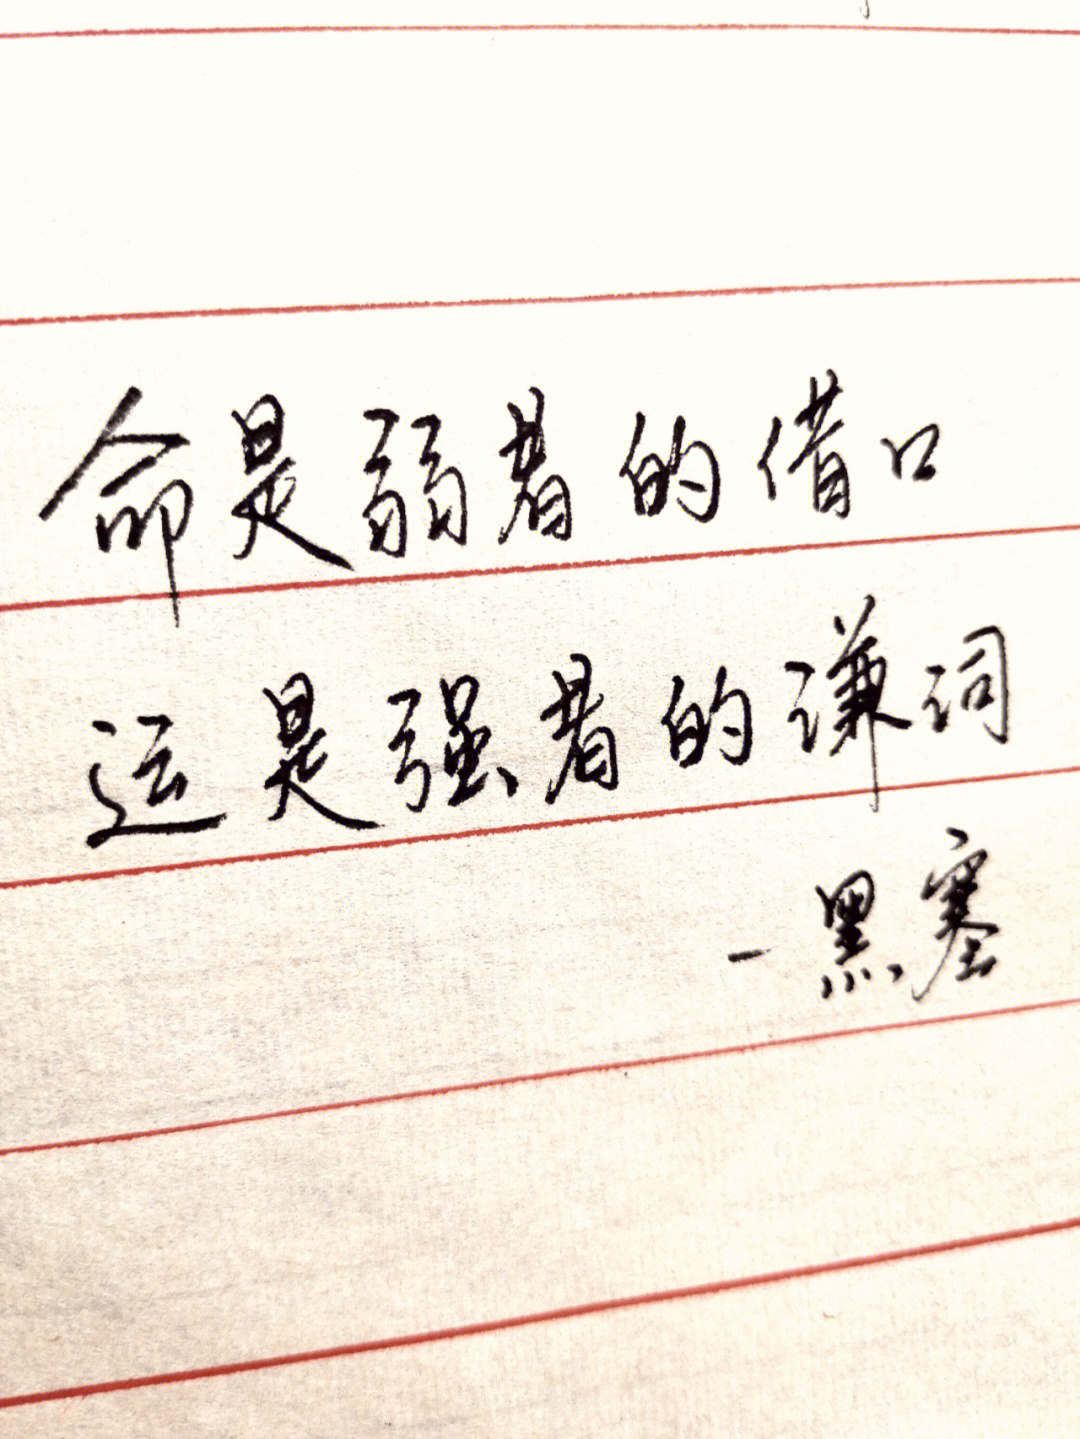 命是弱者的借口
运是强者的谦词
-黑塞